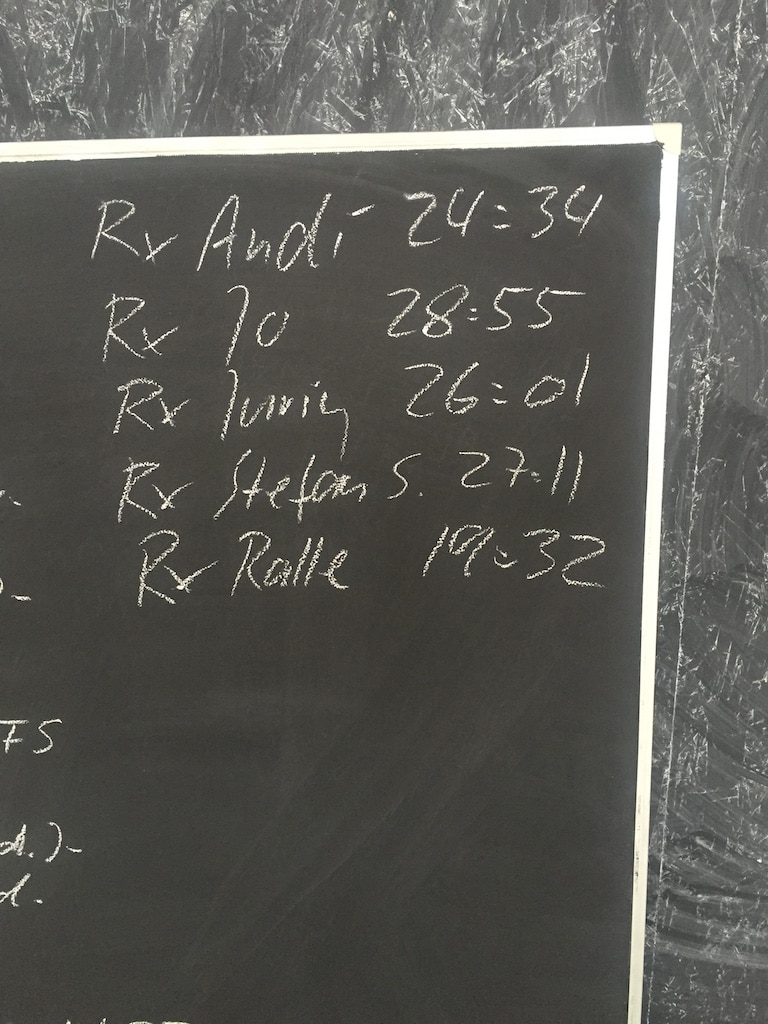 Rx Andi 24:34
Rx Jo 28:55
Rx 26:01
Rx Stefan S. 27:11
Rx Ralle 19:32
FS
d.)-
d.